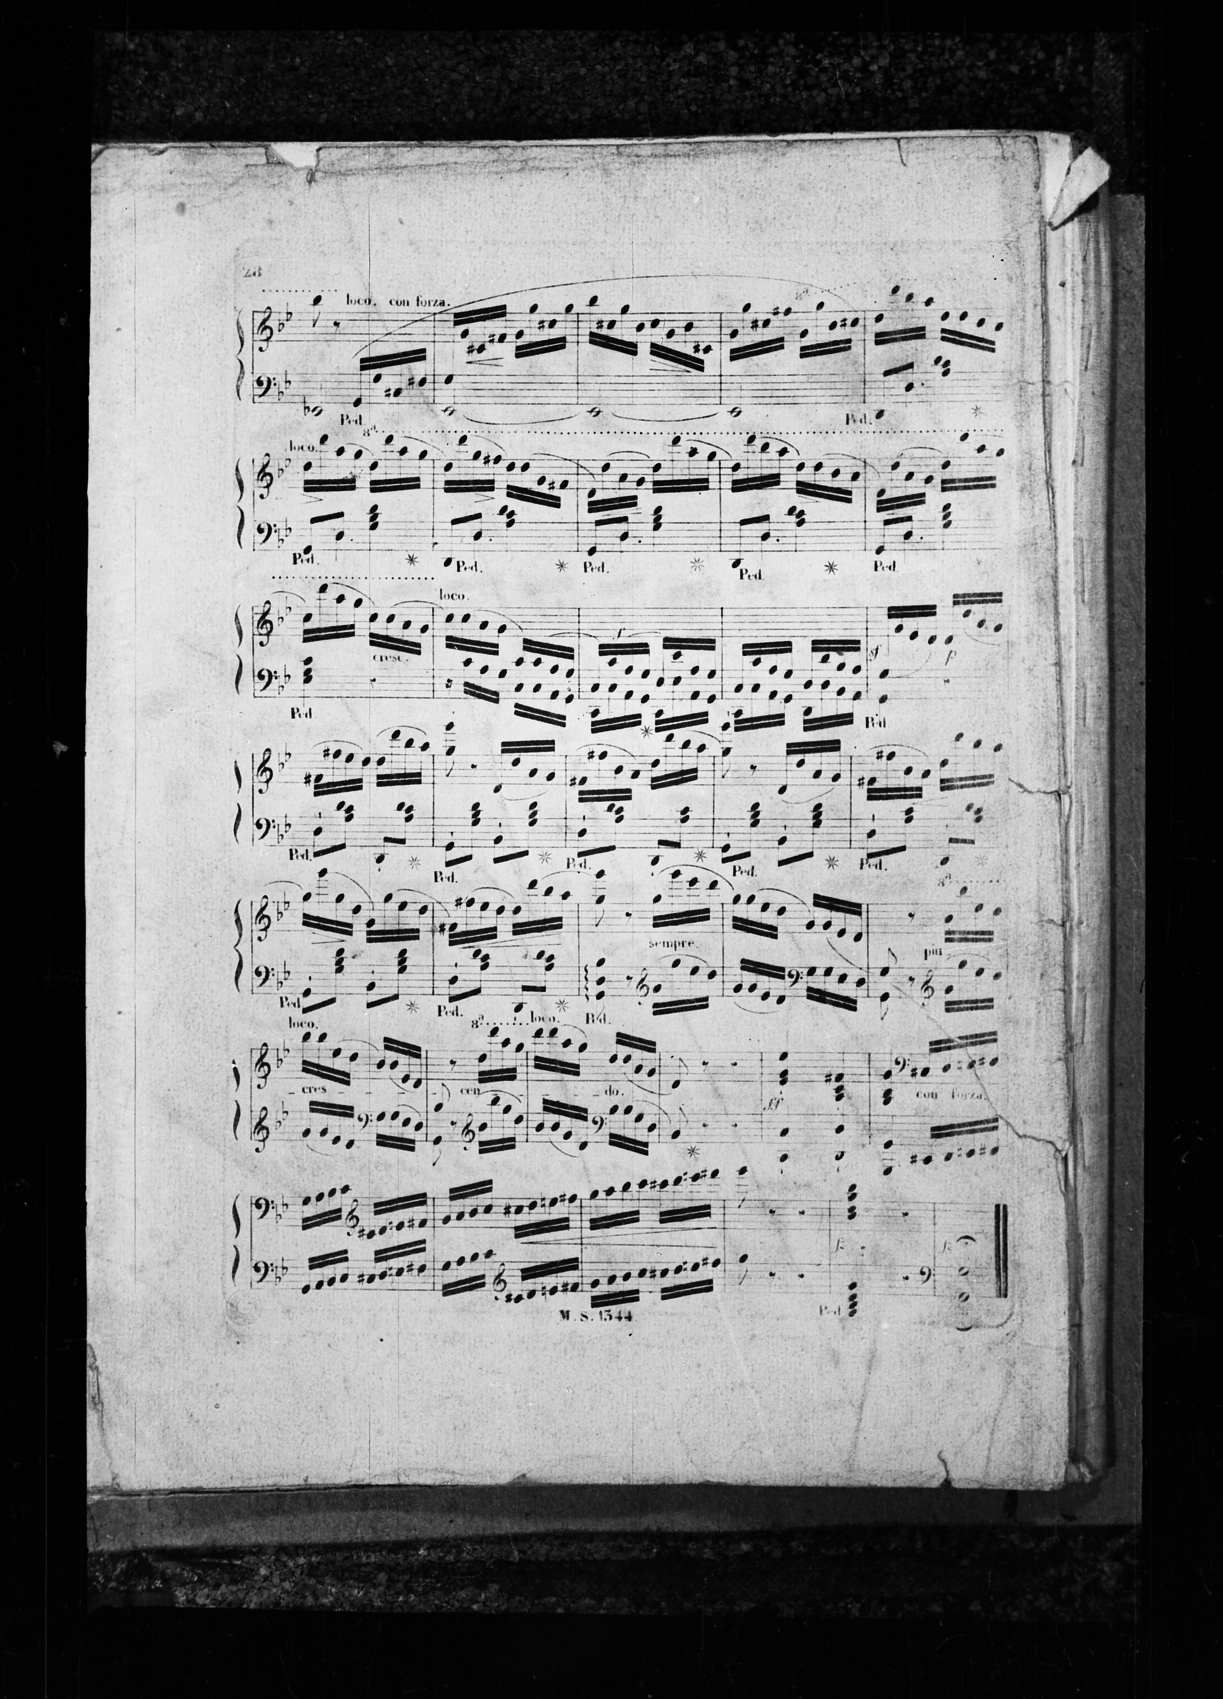 28
loco. con forza. 8ª
Ped. Ped.
loco. 8ª
Ped. Ped. Ped. Ped. Ped.
loco.
cresc. f sf p
Ped Ped
Ped. Ped. Ped. Ped. Ped.
8ª
sempre. piu
Ped Ped. Ped.
loco. 8ª loco.
cres cen do. ff con forza.
Ped
M. S. 1344